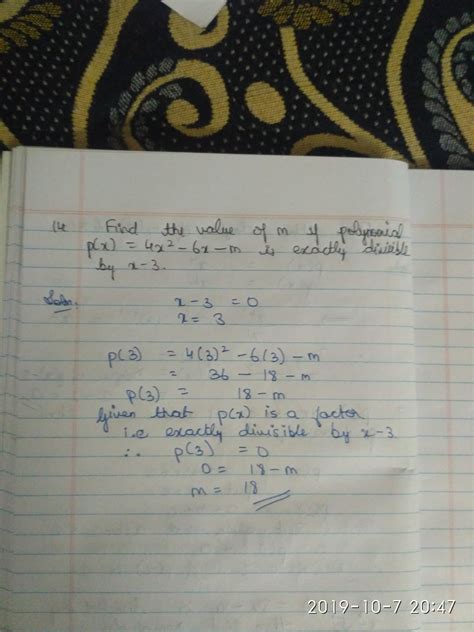 14 Find the value of m if polynomial
p(x) = 4x² - 6x - m is exactly divisible
by x-3.
Soln. x - 3 = 0
x = 3
p(3) = 4(3)² - 6(3) - m
= 36 - 18 - m
p(3) = 18 - m
Given that p(x) is a factor
i.e exactly divisible by x-3
∴ p(3) = 0
0 = 18 - m
m = 18
2019-10-7 20:47